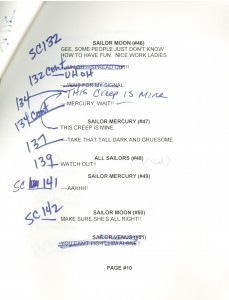 SC132
SAILOR MOON (#46)
GEE, SOME PEOPLE JUST DON'T KNOW
HOW TO HAVE FUN. NICE WORK LADIES.
132 Cont
UH OH
134
WAIT FOR MY SIGNAL
THIS CREEP IS MINE
134 Cont
MERCURY, WAIT!!
SAILOR MERCURY (#47)
THIS CREEP IS MINE.
137
TAKE THAT TALL DARK AND GRUESOME.
ALL SAILORS (#48)
139
WATCH OUT!!
SAILOR MERCURY (#49)
SC 141
AAHHH!!
SAILOR MOON (#50)
SC 142
MAKE SURE SHE'S ALL RIGHT!!
SAILOR VENUS (#51)
YOU CAN'T FIGHT HIM ALONE!!
PAGE #10